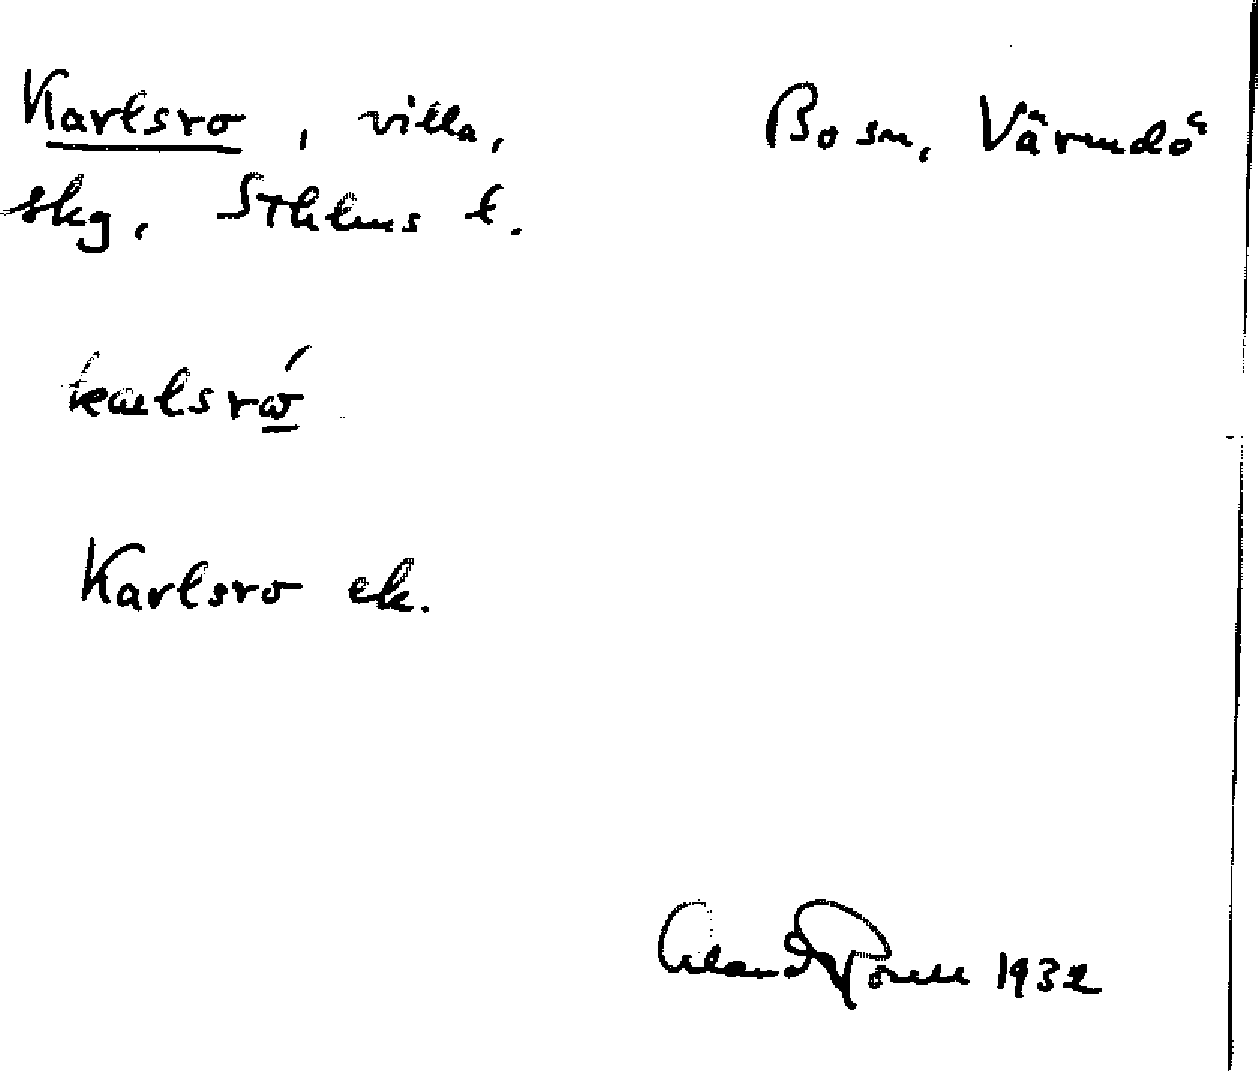 Karlsro, villa, Bo sn, Värmdö
skg, Sthlms l.
kalsró
Karlsro ek.
1932